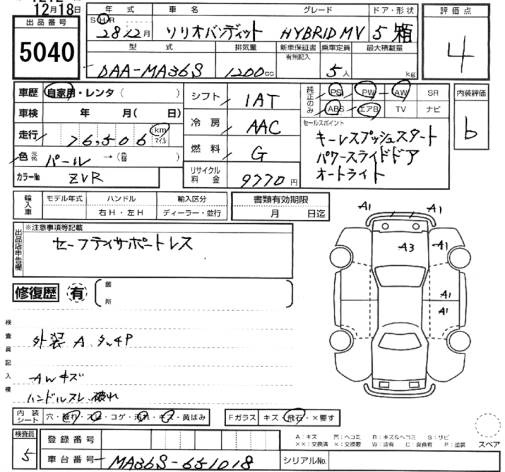 12月18日
出品番号 5040
年式 車名 グレード ドア・形状 評価点
S・H・R 28年12月 ソリオバンディット HYBRID MV 5 箱 4
型式 排気量 新車保証書 有無記入 乗車定員 最大積載量
DAA-MA36S 1200cc 5人 kg
車歴 自家用・レンタ ( )
シフト IAT
純正のみ PS PW AW SR ABS エアB TV ナビ
内装評価 b
車検 年 月 ( 日)
冷房 AAC
セールスポイント
キーレスプッシュスタート
パワースライドドア
オートライト
走行 76,506 km マイル
燃料 G
色 パール → ( )
カラーNo ZVR
リサイクル料金 9770円
輸入車 モデル年式 ハンドル 輸入区分 書類有効期限
右H・左H ディーラー・並行 月 日迄
出品店申告欄 ※注意事項等記載
セーフティサポートレス
A1 A1 A3 A1 A1 A1
修復歴 有 箇所
検査員記入欄
外装 A.
AWキズ
ハンドルスレ
内装シート 穴・・スレ・コゲ・汚れ・キズ・黄ばみ
Fガラス キズ・飛石・×要す
A:キズ
××:交換済 ×:交換要
スペア
検査員 5
登録番号
車台番号 MA36S-651018 シリアルNo.